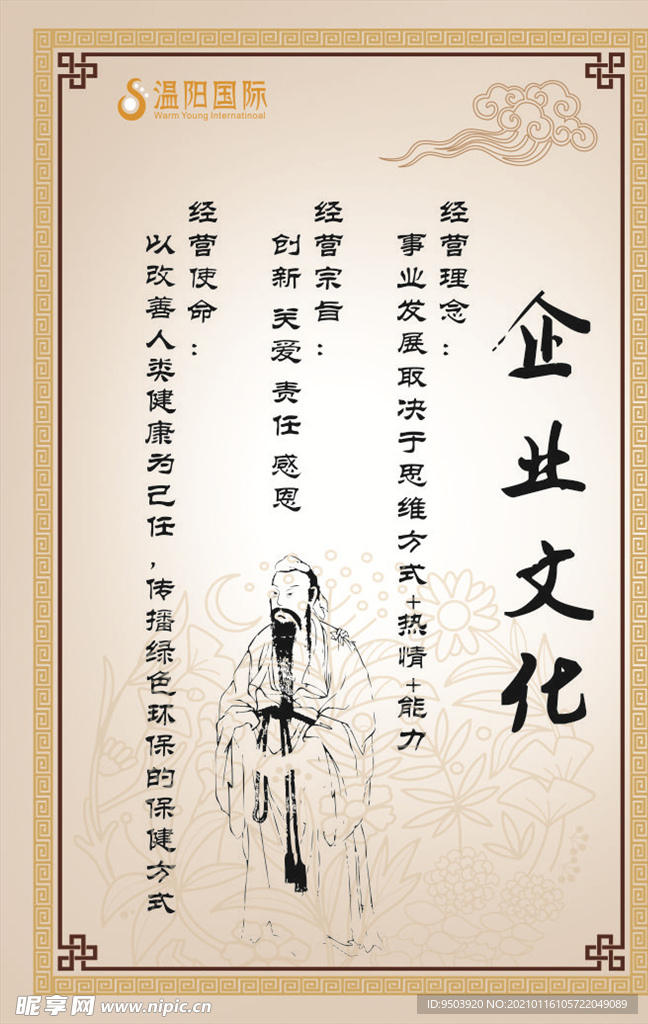 温阳国际
Warm Young Internatinoal
企业文化
经营理念：
事业发展取决于思维方式+热情+能力
经营宗旨：
创新 关爱 责任 感恩
经营使命：
以改善人类健康为己任，传播绿色环保的保健方式
昵享网 www.nipic.cn
ID:9503920 NO:20210116105722049089